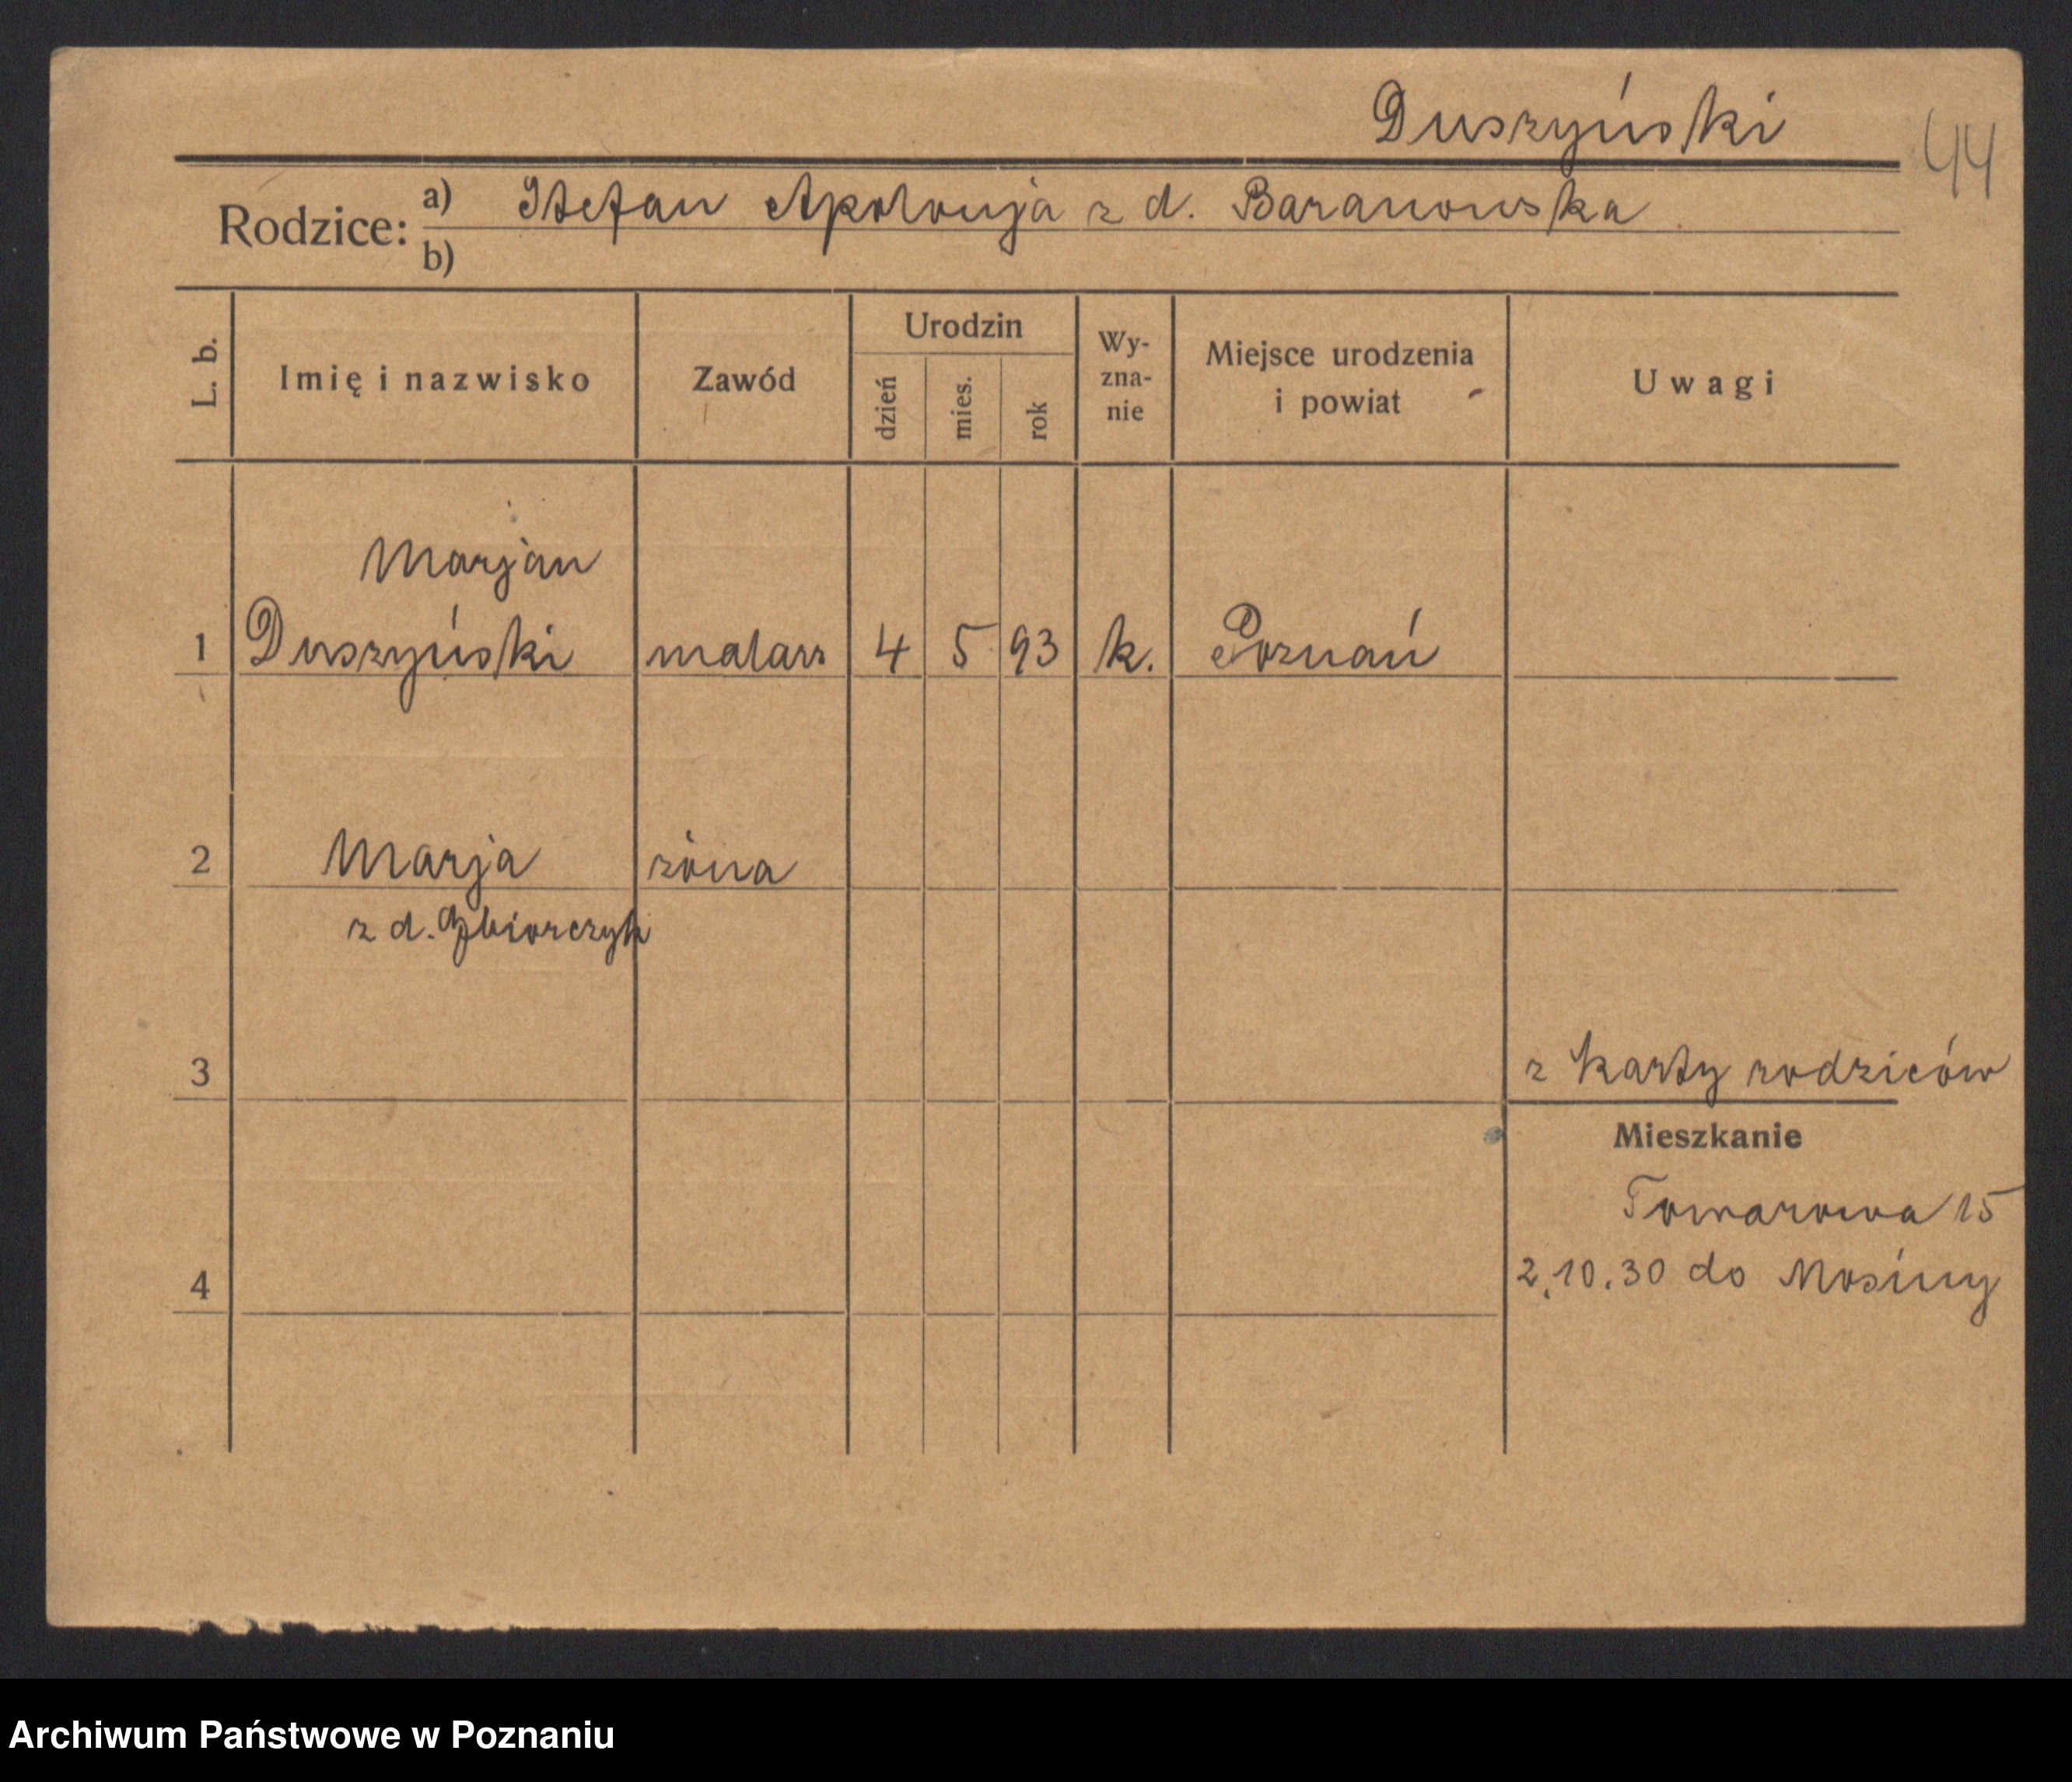 Duszyński
44
Rodzice: a) Stefan Apolonja z d. Baranowska
b)
L. b.
Imię i nazwisko
Zawód
Urodzin
dzień
mies.
rok
Wy-
zna-
nie
Miejsce urodzenia
i powiat
Uwagi
Marjan
1 Duszyński malarz 4 5 93 k. Poznań
2 Marja żona
z d.
3 z karty rodziców
Mieszkanie
Towarowa 15
4 2.10.30 do Mosiny
Archiwum Państwowe w Poznaniu